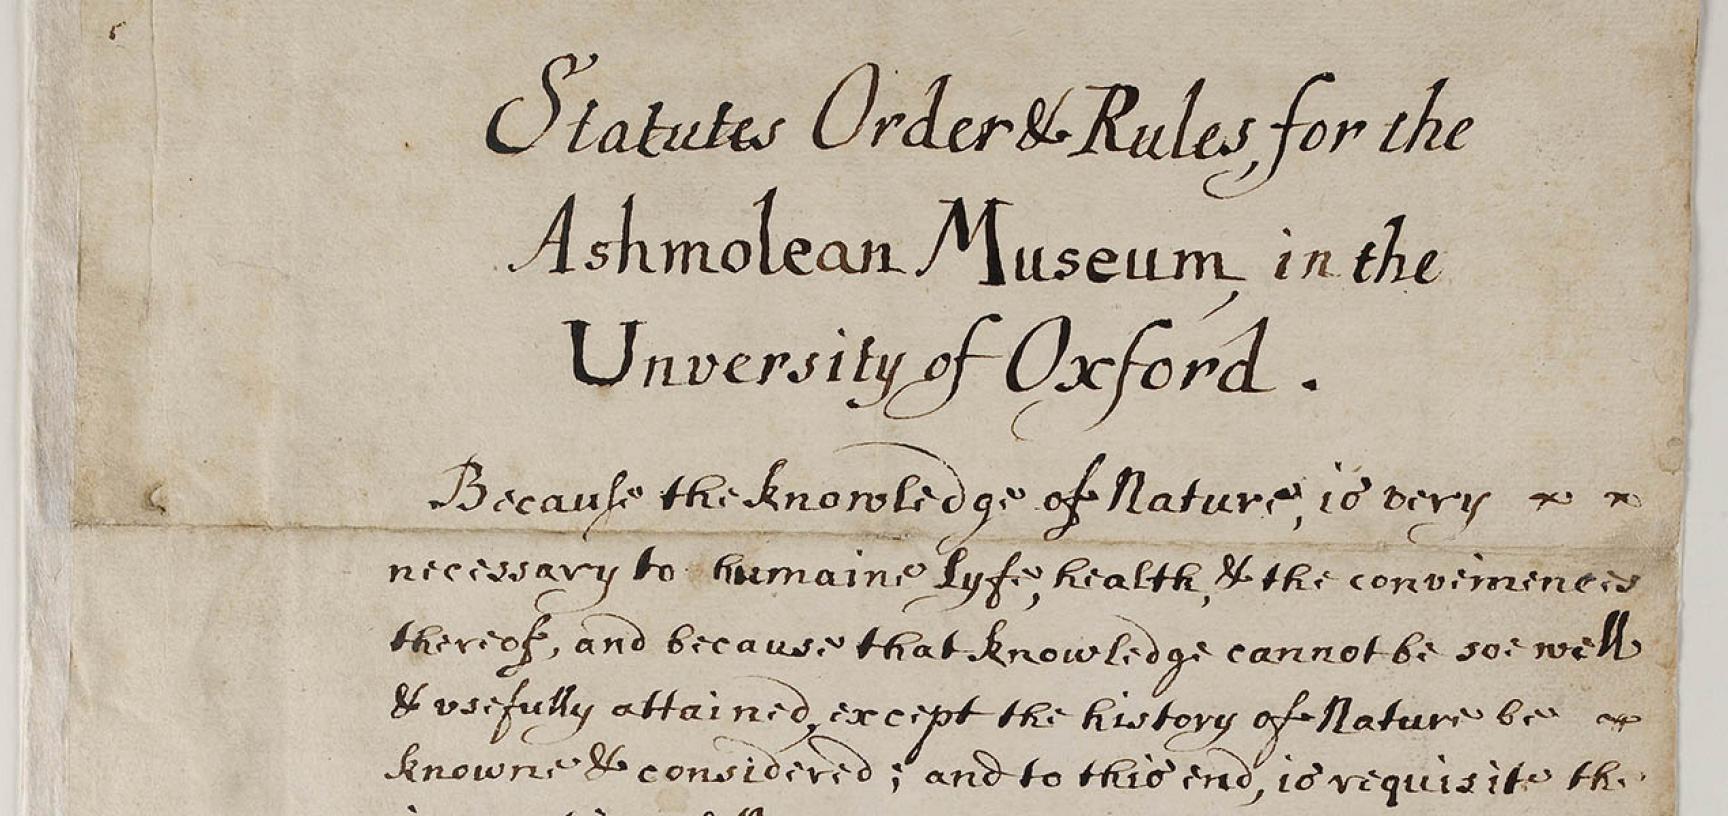 Statutes Order & Rules, for the
Ashmolean Museum, in the
Unversity of Oxford.
Because the knowledge of Nature, is very
necessary to humaine lyfe, health, & the conveniences
thereof, and because that knowledge cannot be soe well
& vsefully attained, except the history of Nature be
knowne & considered; and to this end, is requisite the